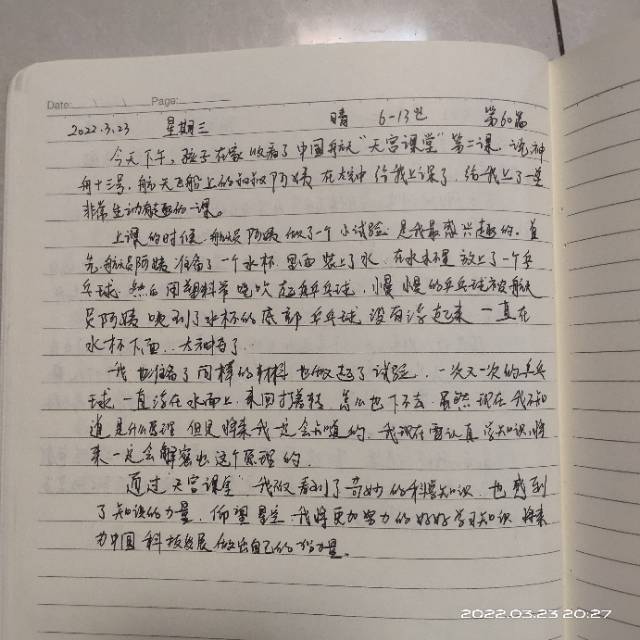 Date: Page:
2022.3.23 星期三 晴 6-13℃ 第60篇
今天下午，孩子在家收看了中国航天“天宫课堂”第二课，神
舟十三号，航天飞船上的叔叔阿姨在太空中给我上课了，给我上了一堂
非常生动有趣的一课。
上课的时候，航天员阿姨做了一个小试验是我最感兴趣的。首
先，航天员阿姨准备了一个水杯，里面装上了水，在水杯里放上了一个乒
乓球，然后用塑料管吹起乒乓球，慢慢的乒乓球被航天
员阿姨吹到了水杯的底部，乒乓球没有浮起来，一直在
水杯下面，太神奇了。
我也准备了同样的材料也做起了试验，一次又一次的乒乓
球一直浮在水面上，来回打着转，怎么也下不去，虽然现在我不知
道是什么原理，但是将来我一定会知道的，我现在要认真学知识，将
来一定会解密出这个原理的。
通过“天宫课堂”我不仅看到了奇妙的科学知识，也感到
了知识的力量，仰望星空，我将更加努力的好好学习知识，将来
为中国科技发展做出自己的力量。
2022.03.23 20:27